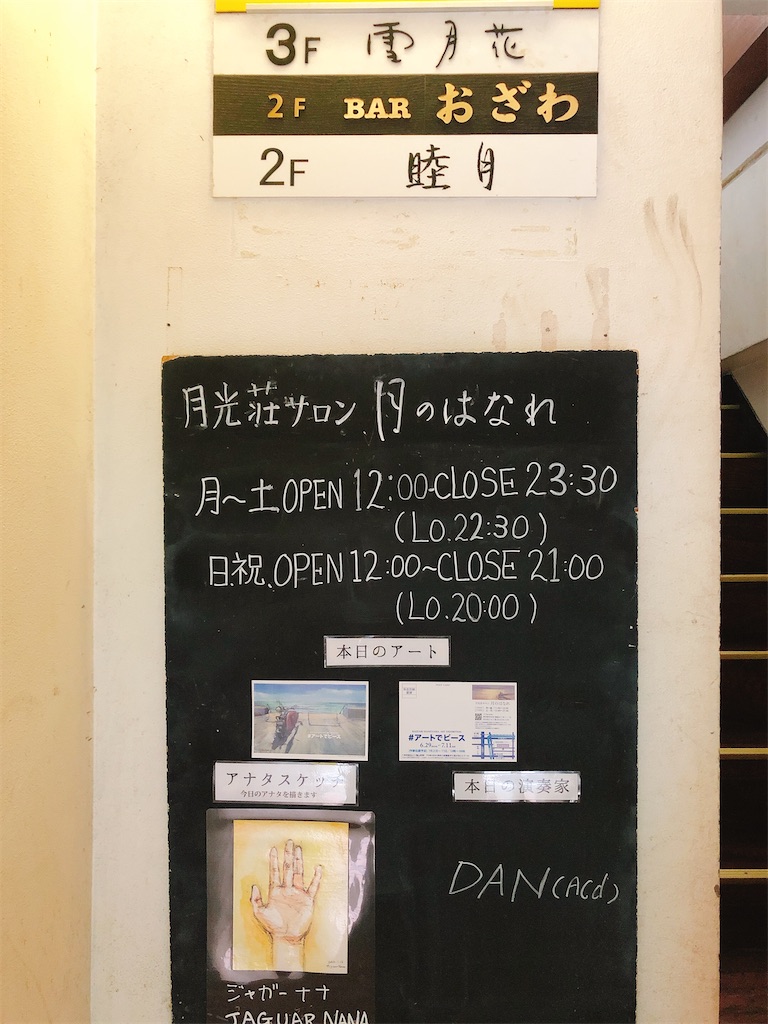 3F 雪月花
2F BAR おざわ
2F 睦月
月光荘サロン 月のはなれ
月〜土 OPEN 12:00-CLOSE 23:30
(LO.22:30)
日.祝.OPEN 12:00~CLOSE 21:00
(LO.20:00)
本日のアート
#アートでピース
#アートでピース
6.29 - 7.11
アナタスケッチ
今日のアナタを描きます
本日の演奏家
DAN(Acd)
ジャガーナナ
JAGUAR NANA